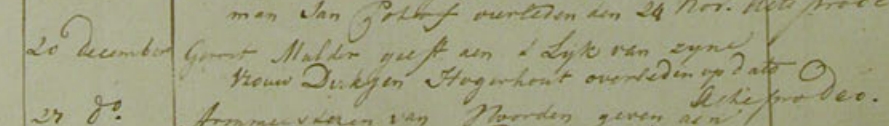 man Jan overleden den 24 Nov. Acte pro deo
20 december Gerrit Mulder geeft aen 't Lyk van zyne
Vrouw Dirkjen Hogerhout overleden op dato
Actie pro deo.
27 do. Armmeesteren van Noorden geven aen